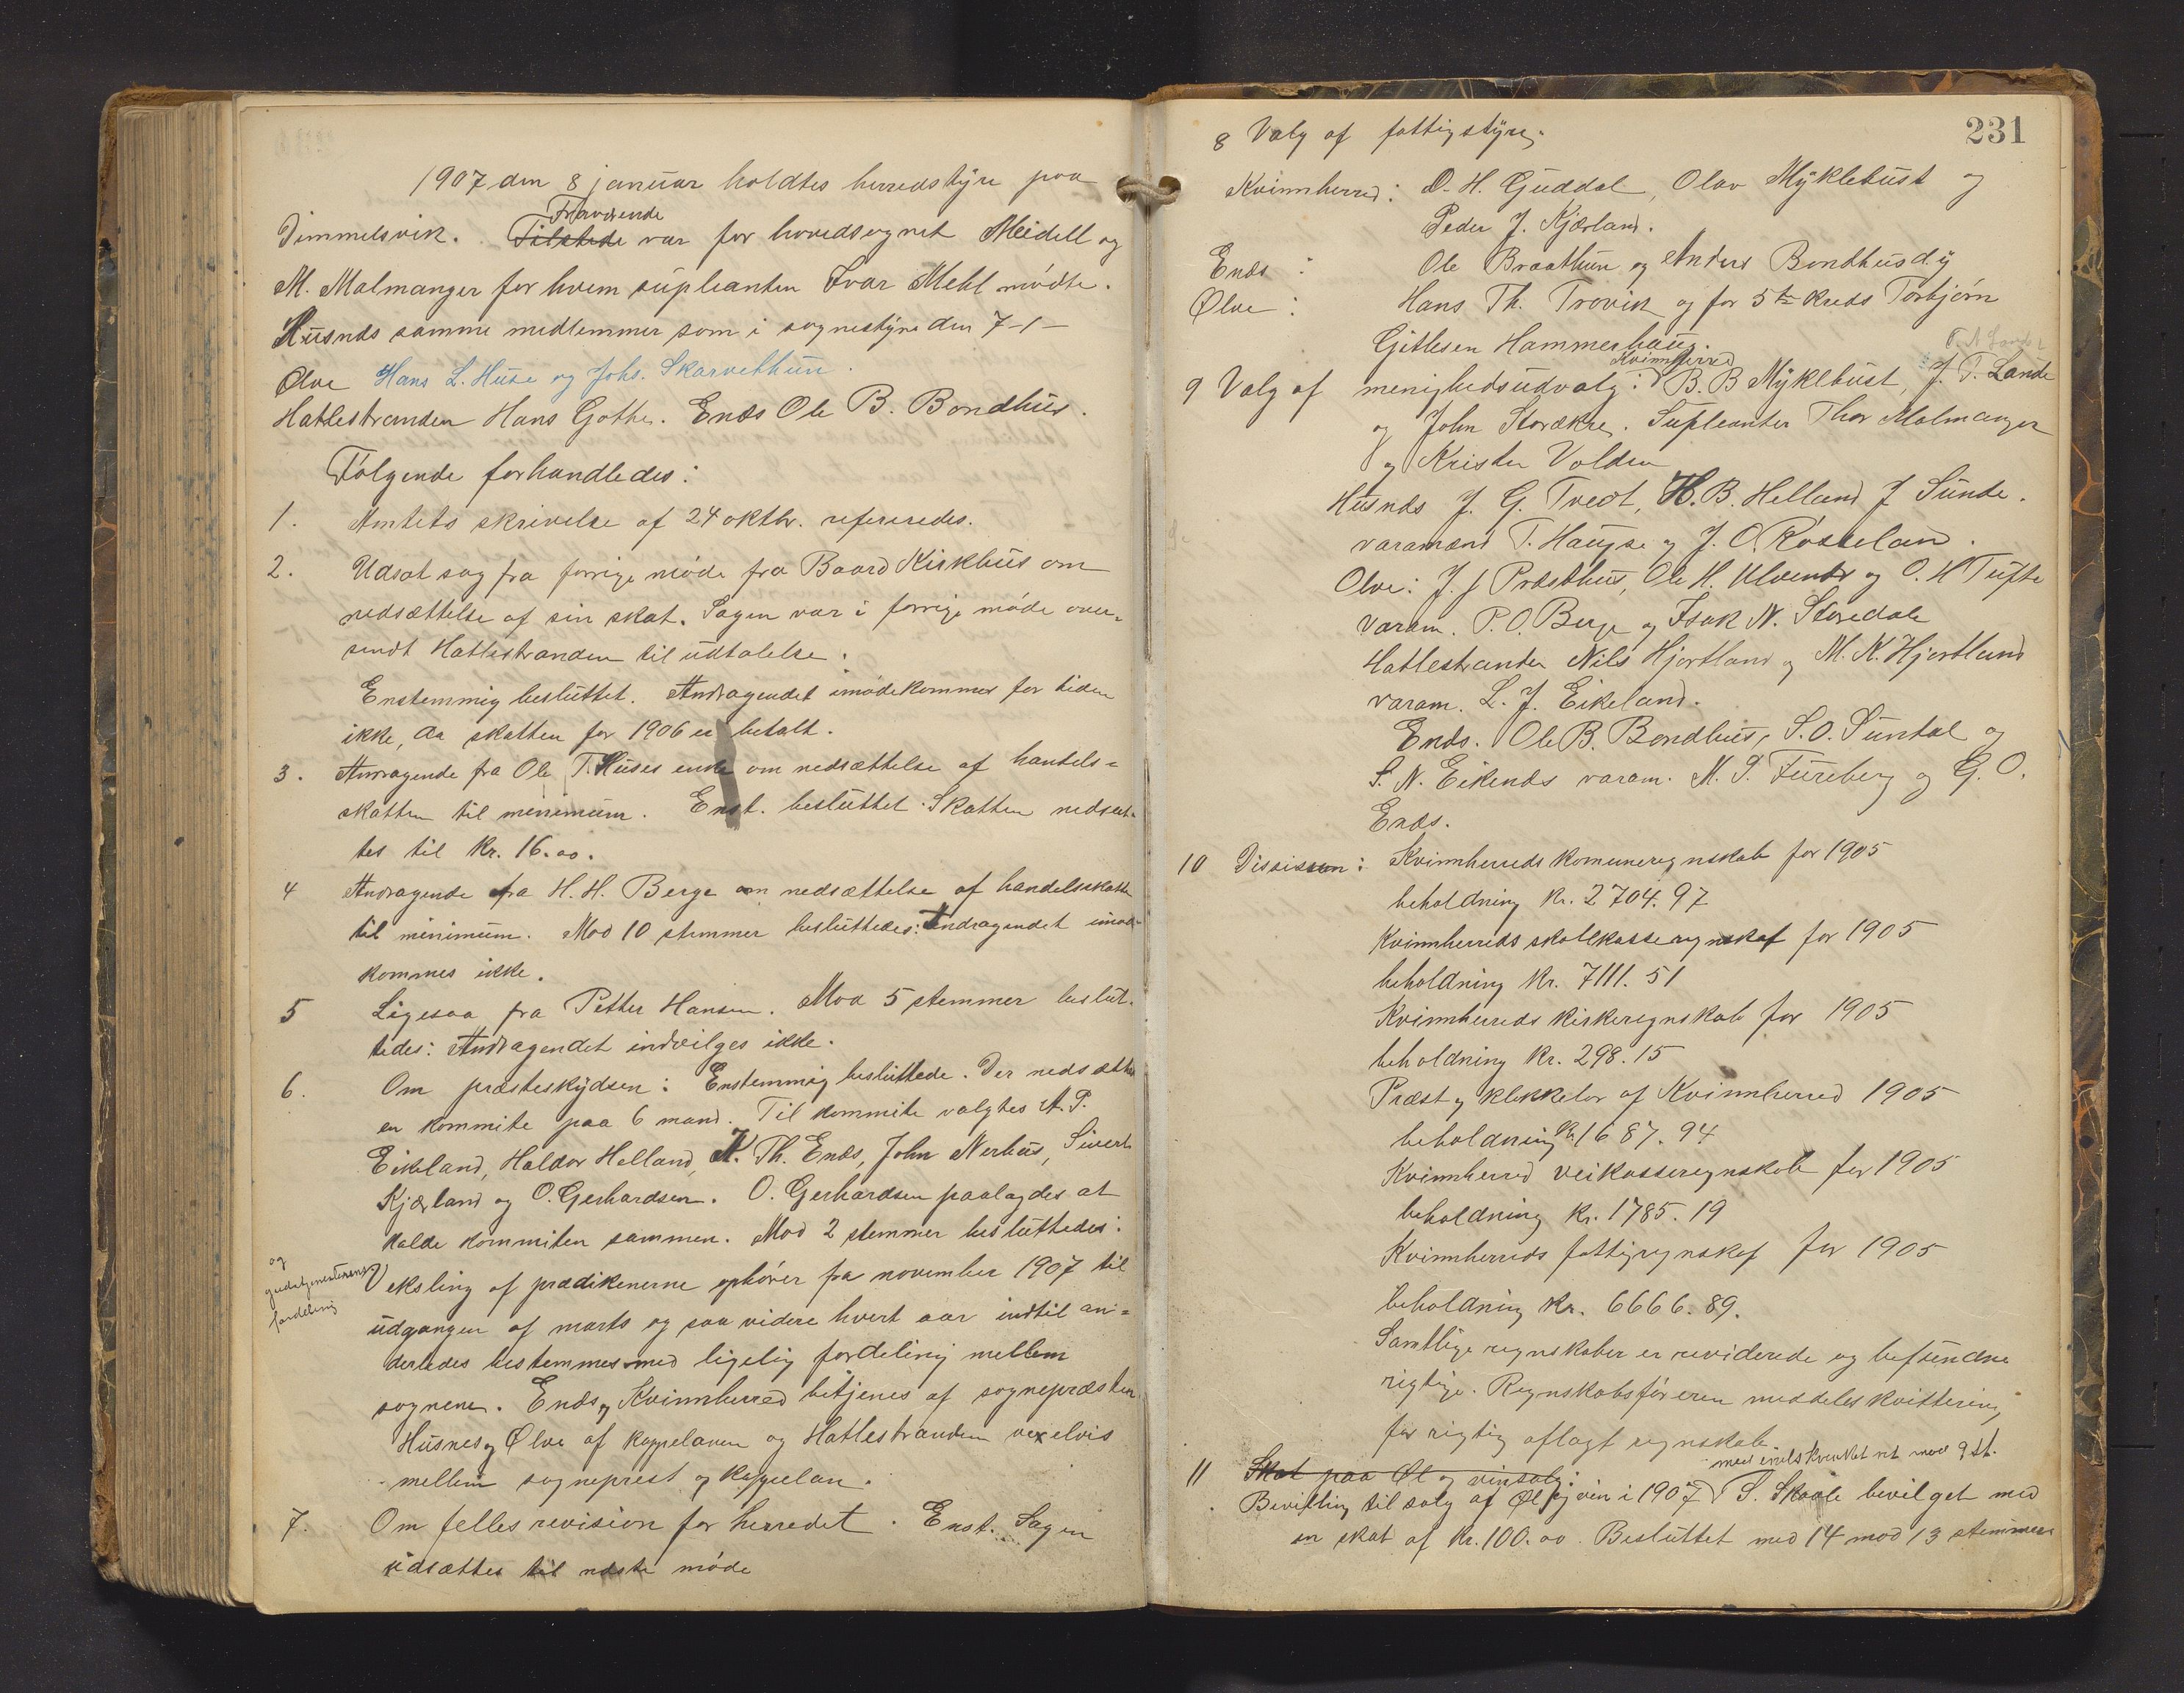 1907 den 8 januar holdtes herredstyre paa
Fraværende
Dimmelsvik. Tilstede var for hovedsognet Meidell og
M. Malmanger for hvem supleanten Ivar Mehl mødte.
Husnes samme medlemmer som i sognestyre den 7-1-
Ølve Hans L. Huse og Johs. Skarvethun.
Hatlestranden Hans Gothe. Enæs Ole B. Bondhus.
Følgende forhandledes:
1. Amtets skrivelse af 24 oktbr. refereredes.
2. Udsat sag fra forrige møde fra Baard Kirkhus om
nedsættelse af sin skat. Sagen var i forrige møde over-
sendt Hatlestranden til udtalelse.
Enstemmig besluttet. Andragendet imødekommes for tiden
ikke, da skatten for 1906 er betalt.
3. Andragende fra Ole T. Huses enke om nedsættelse af handels-
skatten til minimum. Enst. besluttet. Skatten nedsæt-
tes til kr. 16.00.
4 Andragende fra H. H. Berge om nedsættelse af handelsskatten
til minimum. Mod 10 stemmer besluttedes: Andragendet imøde-
kommes ikke.
5 Ligesaa fra Petter Hansen. Mod 5 stemmer beslut-
tedes: Andragendet indvilges ikke.
6. Om præsteskydsen: Enstemmig besluttede. Der nedsættes
en kommite paa 6 mand. Til kommite valgtes A. P.
Eikland, Haldor Helland, K. Th. Enæs, John Nerhus, Sivert
Kjærland og O. Gerhardsen. O. Gerhardsen paalagdes at
kalde kommiten sammen. Mod 2 stemmer besluttedes:
og
gudstjenesternes
fordeling
Veksling af prædikenerne ophører fra november 1907 til
udgangen af marts og saa videre hvert aar indtil an-
derledes bestemmes med ligelig fordeling mellem
sognene. Enæs og Kvinnherred betjenes af sognepræsten
Husnes og Ølve af kappelanen og Hatlestranden vexelvis
mellem sogneprest og kappelan.
7. Om felles revision for herredet. Enst. Sagen
udsættes til næste møde
231
8 Valg af fattigstyre.
Kvinnherred: D. H. Guddal, Olav Myklebust og
Peder J. Kjærland.
Enæs: Ole Braathun og Anders Bondhus d.y
Ølve: Hans Th. Trovik og for 5te kreds Torbjørn
Gitlesen Hammerhaug.
Kvinnherred
9 Valg af menighedsudvalg: B. B Myklebust, J. T. Lande
og John Storækre. Supleanter Thor Malmanger
og Krister Volden
Husnes J. G. Tvedt, H. B. Helland J Sunde.
varamænd T. Haugse og J. O. Røsseland.
Ølve: J. J Præsthus, Ole H. Ulvenes og O. H Tufte
varam. P. O. Berge og Isak N. Støredale
Hatlestranden Nils Hjortland og M. K. Hjortland
varam. L. J. Eikeland.
Enæs. Ole B. Bondhus, S. O. Sundal og
S. N. Eikenæs varam. M. P. Fureberg og G. O.
Enæs.
10 Disision: Kvinnherreds komuneregnskab for 1905
beholdning kr. 2704.97
Kvinnherreds skolekasseregnskap for 1905
beholdning kr. 7111.51
Kvinnherreds kirkeregnskab for 1905
beholdning kr. 298.15
Præst og klokkelov af Kvinnherred 1905
beholdning kr. 1687.94
Kvinnherred veikasseregnskab for 1905
beholdning kr. 1785.19
Kvinnherreds fattigregnskap for 1905
beholdning kr. 6666.89.
Samtlige regnskaber er reviderede og befundne
rigtige. Regnskabsføreren meddeles kvittering
for rigtig aflagt regnskab.
11 Skat paa Øl og vinsalg:
med indskrænket ret mod 9 st.
Bevilling til salg af Øl og vin i 1907 S. Skaale bevilget med
en skat af kr. 100.00. Besluttet med 14 mod 13 stemmer